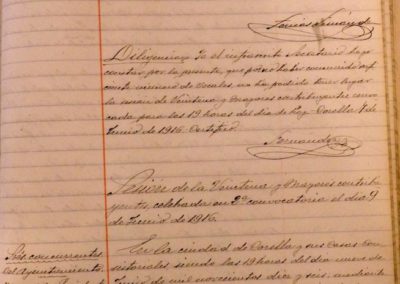 Diligencia: Yo el infrascrito Secretario hago
constar por la presente, que por no haber comunicado suf
ciente número de vocales, no ha podido tener lugar
la sesión de Veintena y mayores contribuyentes convo
cada para las 19 horas del día de hoy. Corella 7 de
Junio de 1916. Certifico.
Sesión de la Veintena y Mayores contribu
yentes, celebrada en 2ª convocatoria el día 9
de Junio de 1916.
Sres. concurrentes
Del Ayuntamiento
En la ciudad de Corella y sus Casas Con
sistoriales siendo las 19 horas del día nueve de
Junio de mil novecientos diez y seis, mediante